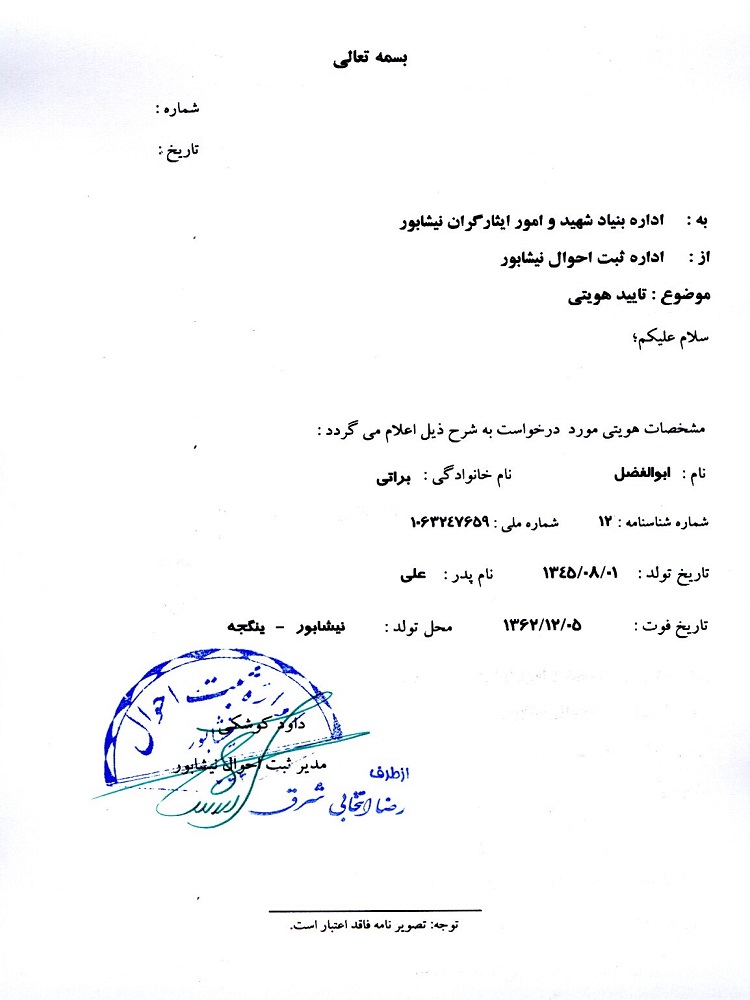 بسمه تعالی
شماره :
تاریخ :
به : اداره بنیاد شهید و امور ایثارگران نیشابور
از : اداره ثبت احوال نیشابور
موضوع : تایید هویتی
سلام علیکم؛
مشخصات هویتی مورد درخواست به شرح ذیل اعلام می گردد :
نام : ابوالفضل نام خانوادگی : براتی
شماره شناسنامه : ۱۲ شماره ملی : ۱۰۶۳۲۴۷۶۵۹
تاریخ تولد : ۱۳۴۵/۰۸/۰۱ نام پدر : علی
تاریخ فوت : ۱۳۶۲/۱۲/۰۵ محل تولد : نیشابور - ینگجه
اداره ثبت احوال
نیشابور
داود کوشکی
مدیر ثبت احوال نیشابور
ازطرف
رضا انتخابی شرق
توجه: تصویر نامه فاقد اعتبار است.